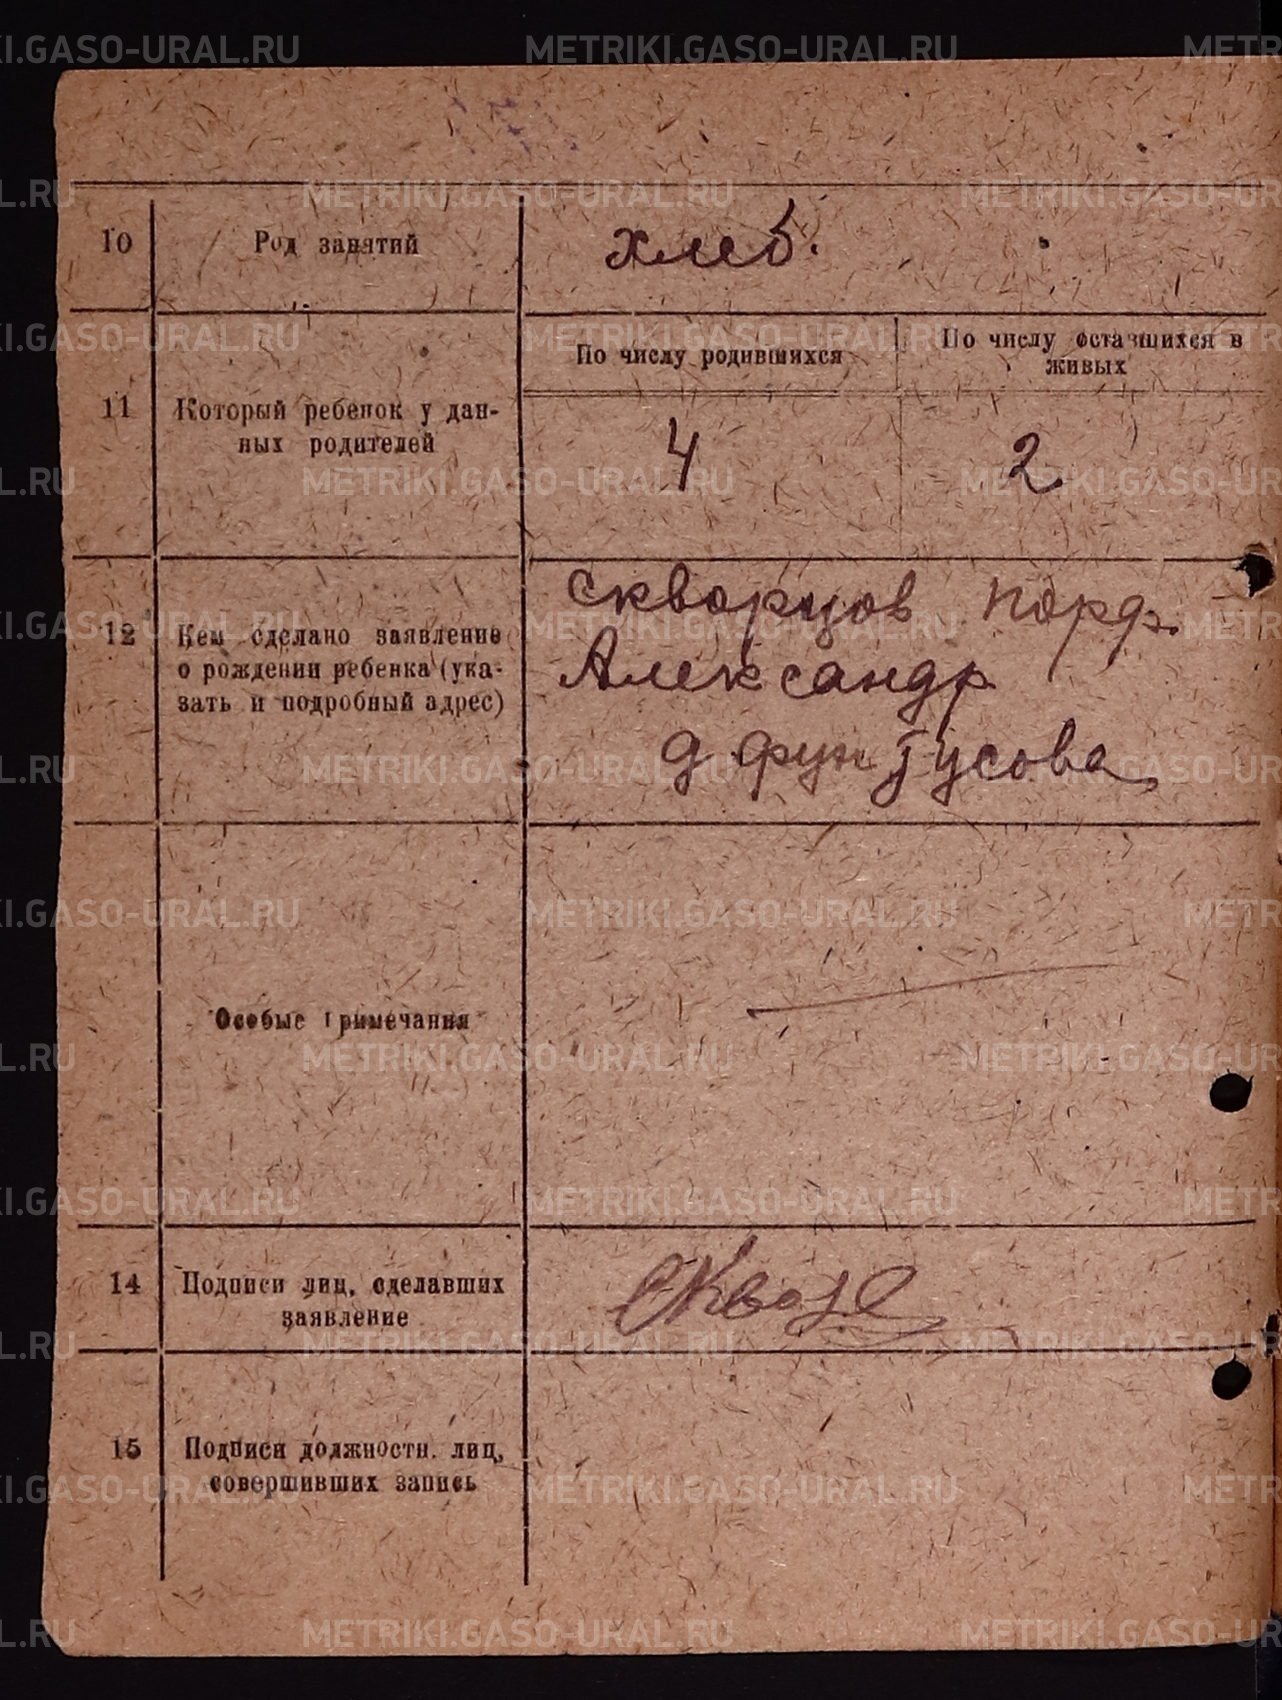 10 Род занятий хлеб.
По числу родившихся
По числу оставшихся в
живых
11 Который ребенок у дан-
ных родителей
4 2
12 Кем сделано заявление
о рождении ребенка (ука-
зать и подробный адрес)
Скворцов Порф.
Александр
д Фунтусова
Особые примечания
14 Подписи лиц, сделавших
заявление
15 Подписи должностн. лиц,
совершивших запись
METRIKI.GASO-URAL.RU